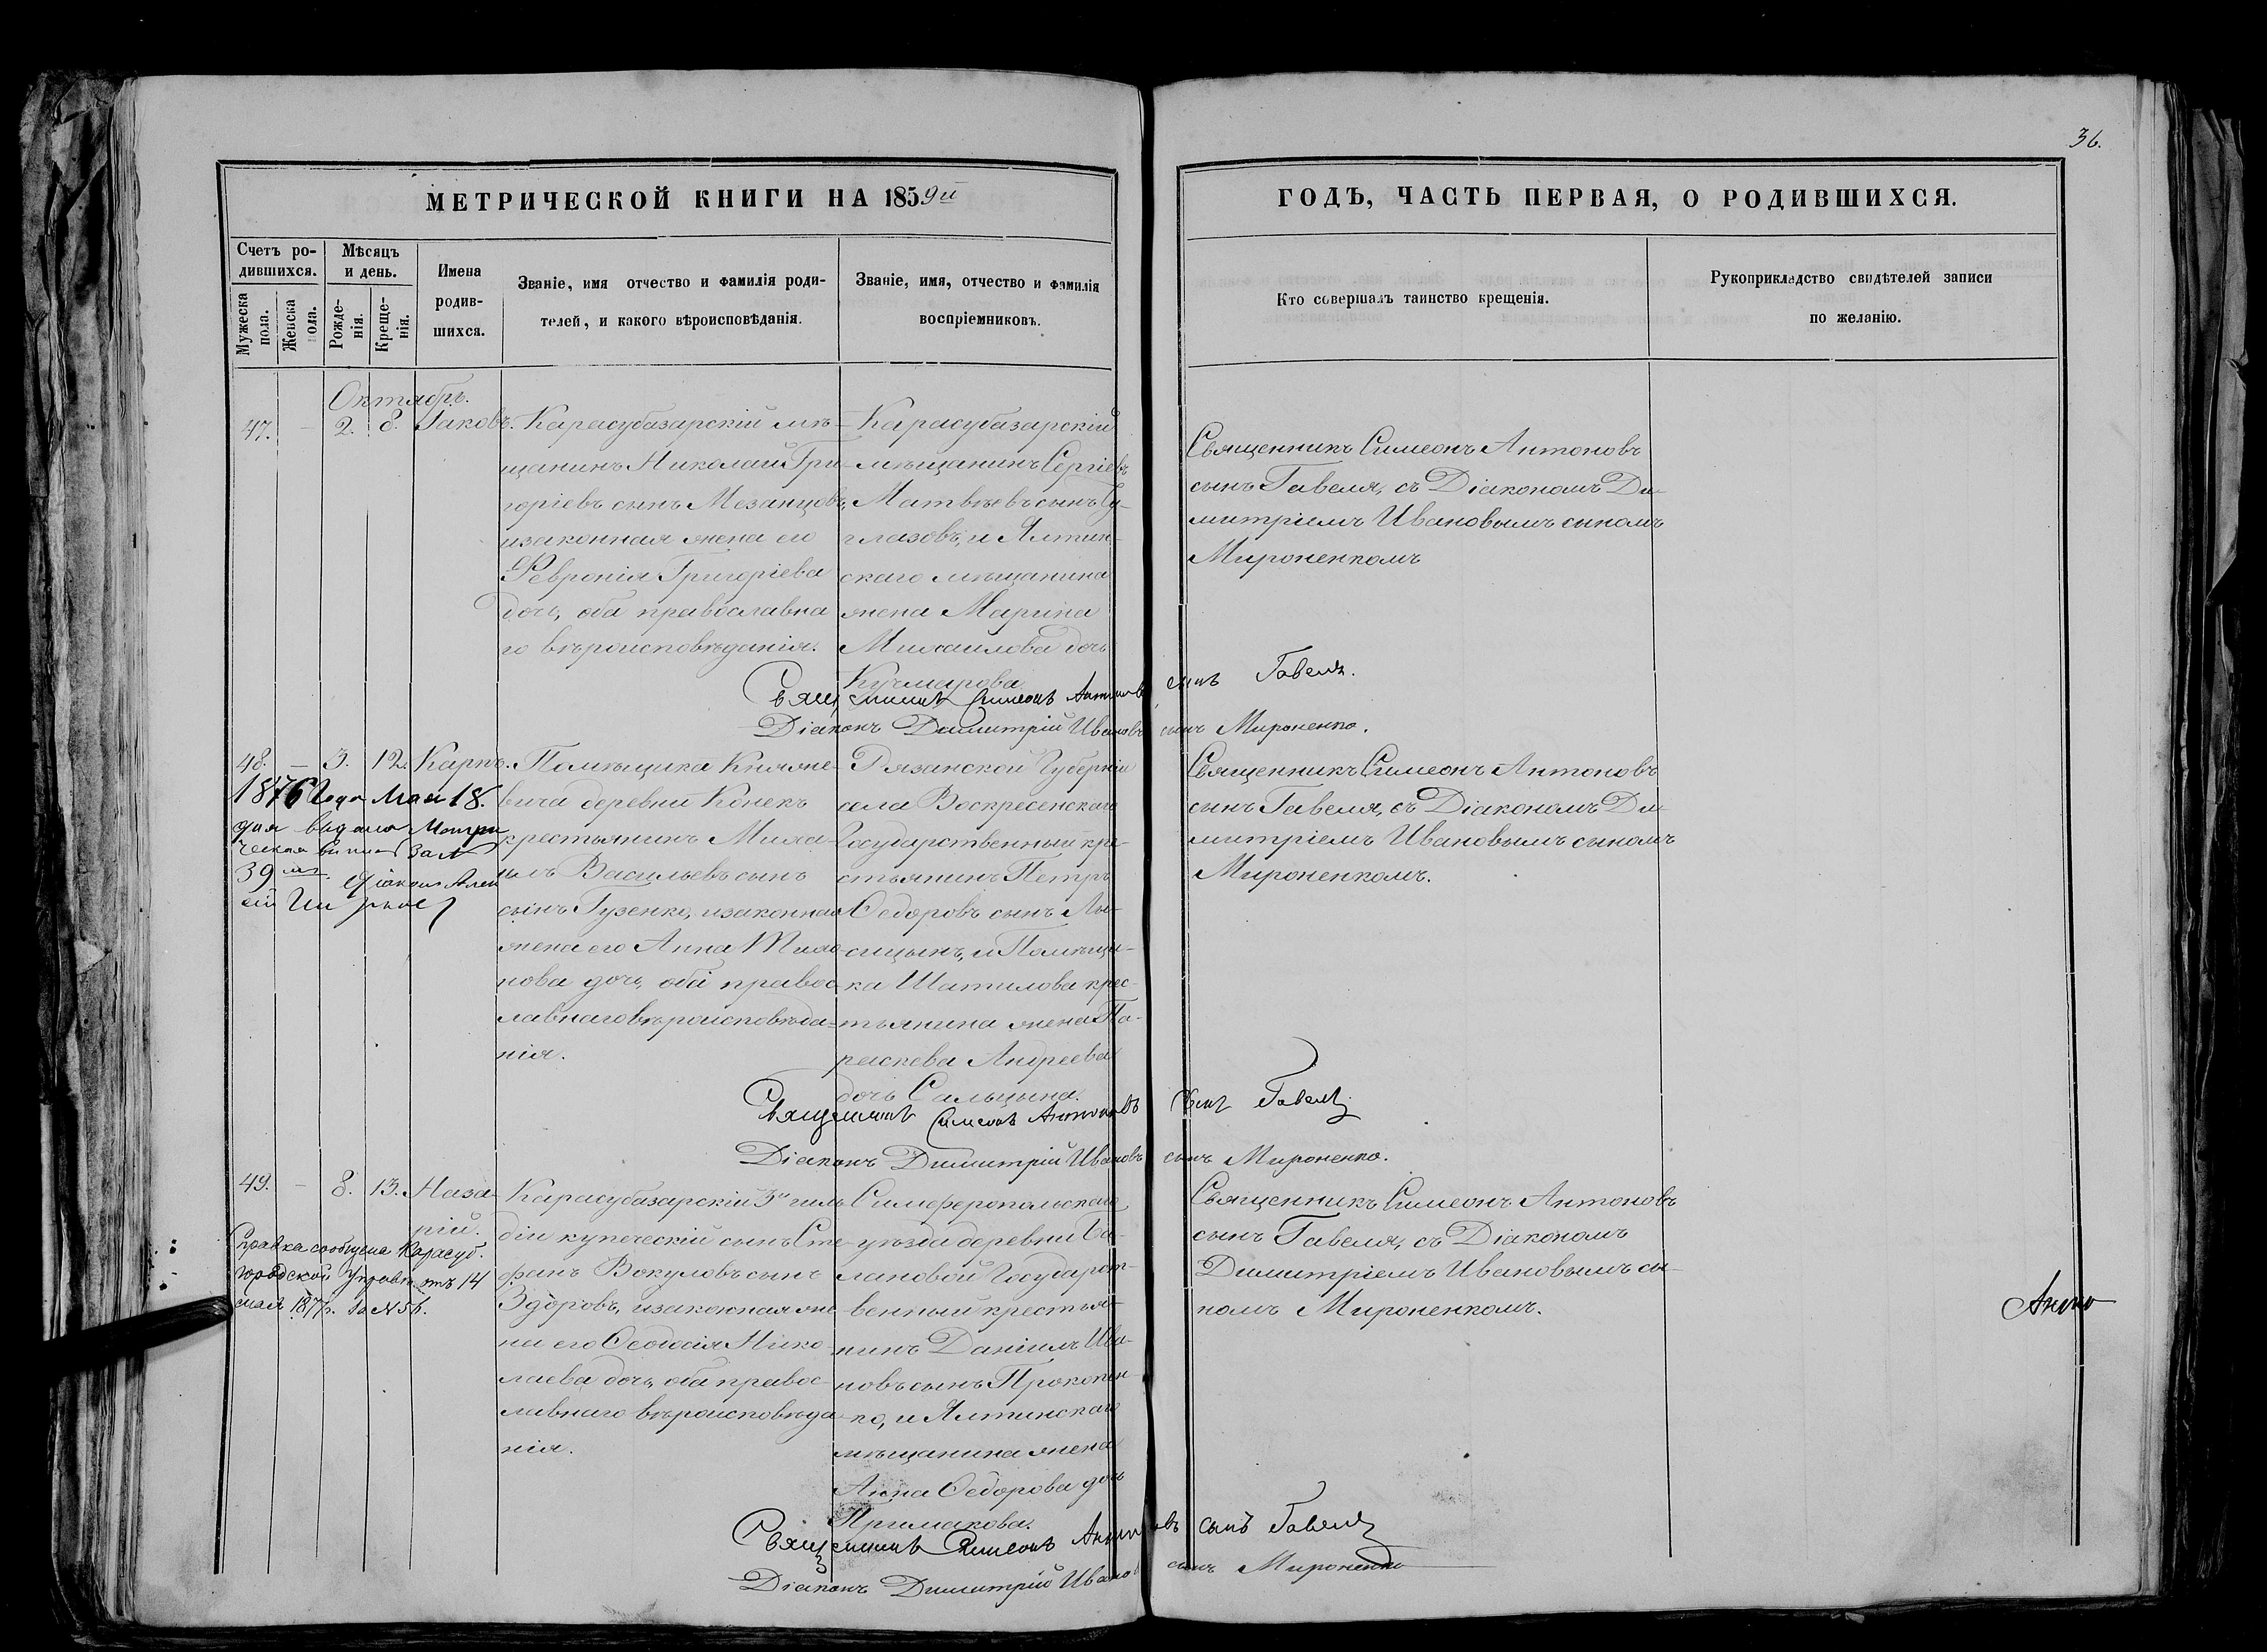 36.
МЕТРИЧЕСКОЙ КНИГИ НА 1859й
ГОДЪ, ЧАСТЬ ПЕРВАЯ, О РОДИВШИХСЯ.
Счетъ ро-
дившихся.
Мужеска
пола.
Женска
пола.
Мѣсяцъ
и день.
Рожде-
нія.
Креще-
нія.
Имена
родив-
шихся.
Званіе, имя отчество и фамилія роди-
телей, и какого вѣроисповѣданія.
Званіе, имя, отчество и фамилія
воспріемниковъ.
Кто совершалъ таинство крещенія.
Рукоприкладство свидѣтелей записи
по желанію.
Октябрь.
47. – 2. 8. Іаковъ.
Карасубазарскій мѣ-
щанинъ Николай Гри-
горіевъ сынъ Мезанцовъ,
изаконная жена его
Февронія Григоріева
дочь, оба православна
го вѣроисповѣданія.
Карасубазарскій
мѣщанинъ Сергіевъ
Матвѣевъ сынъ Гу-
глазовъ, и Ялтин-
скаго мѣщанина
жена Марина
Михаилова дочь
Кучмарова
Священникъ Симеонъ Антоновъ
сынъ Гавеля, съ Діакономъ Ди-
митріемъ Ивановымъ сыномъ
Мироненкомъ
Священникъ Симеонъ Антоновъ сынъ Гавеля.
Діаконъ Димитрій Ивановъ сынъ Мироненко.
48. – 3. 12. Карпъ.
1876 Года Мая 18.
дня выдана Метри
ческая выпись За №
39м Діаконъ
Помѣщика Княже-
вича деревни Конекъ
крестьянинъ Миха-
илъ Васильевъ сынъ
сынъ Гузенко, изаконная
жена его Анна Тихо-
нова дочь, оба правос-
лавнаго вѣроисповѣда-
нія.
Рязанской Губерніи
села Воскресенскаго
Государственный кре-
стьянинъ Петръ
Ѳедоровъ сынъ Лы-
сицынъ, и Помѣщи-
ка Шатилова крес-
тьянина жена Па-
раскева Андреева
дочь Сальцына.
Священникъ Симеонъ Антоновъ
сынъ Гавеля, съ Діакономъ Ди-
митріемъ Ивановымъ сыномъ
Мироненкомъ.
Священникъ Симеонъ Антоновъ сынъ Гавеля
Діаконъ Димитрій Ивановъ сынъ Мироненко.
49. – 8. 13. Наза-
рій.
Справка сообщена Карасуб.
городской Управѣ отъ 14
мая 187 г. за № 56.
Карасубазарскій 3й гиль-
діи купеческій сынъ Сте-
фанъ Вокуловъ сынъ
Здоровъ, изаконная же-
на его Ѳеодосія Нико-
лаева дочь, оба правос-
лавнаго вѣроисповѣда-
нія.
Симферопольскаго
уѣзда деревни Са-
лановой Государст-
венный крестья-
нинъ Даніилъ Ива-
новъ сынъ Прокопен-
ко, и Ялтинскаго
мѣщанина жена
Анна Ѳедорова дочь
Примакова.
Священникъ Симеонъ Антоновъ
сынъ Гавеля, съ Діакономъ
Димитріемъ Ивановымъ сы-
номъ Мироненкомъ.
Священникъ Симеонъ Антоновъ сынъ Гавеля
Діаконъ Димитрій Ивановъ сынъ Мироненко